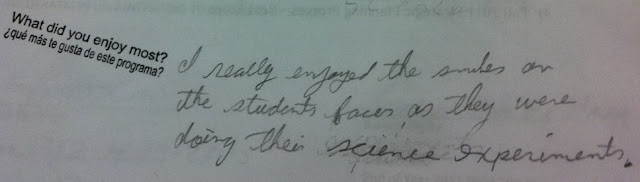 What did you enjoy most?
¿qué más te gusta de este programa?
I really enjoyed the smiles on
the students faces as they were
doing their science experiments.